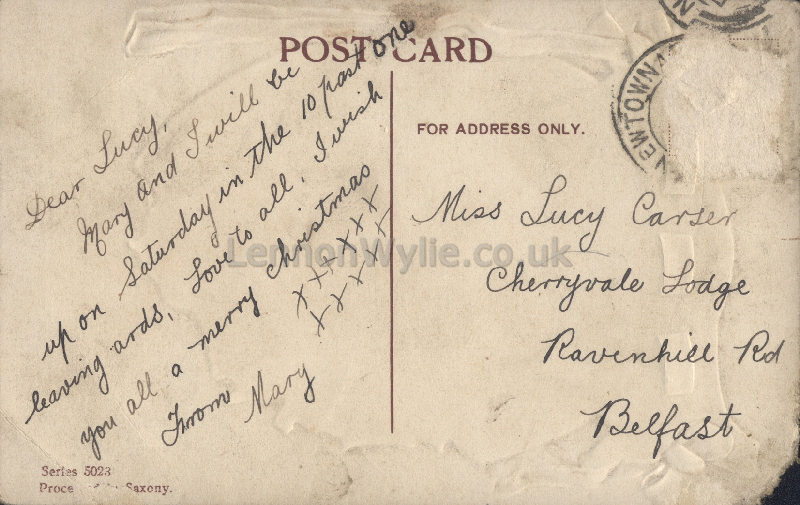 POST CARD
Dear Lucy,
Mary and I will be
up on Saturday in the 10 past one
leaving ards, Love to all, I wish
you all a merry christmas
From Mary
xxxxx
xxxx
FOR ADDRESS ONLY.
Miss Lucy Carser
Cherryvale Lodge
Ravenhill Rd
Belfast
NEWTOWNA
LennonWylie.co.uk
Series 5023
Saxony.